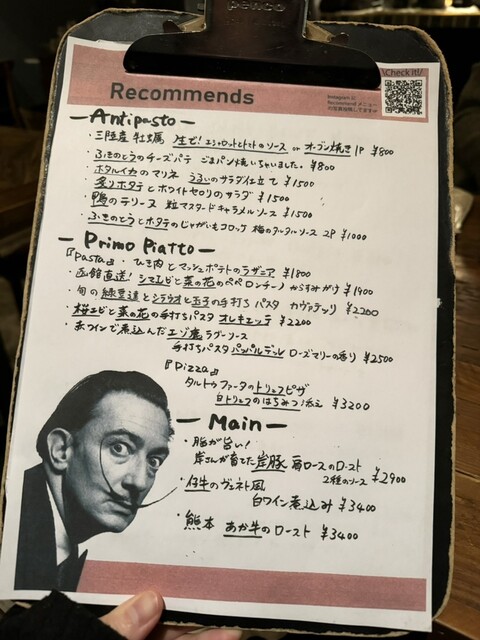 penco
\Check it!/
Recommends
Instagram は
Recommend メニュー
—Antipasto—
・三陸産 牡蠣 生で！エシャロットとトマトのソース or オーブン焼き 1P ¥800
・ふきのとうのチーズパテ ごまパン焼いちゃいました。¥800
・ホタルイカのマリネ うるいのサラダ仕立て ¥1500
・炙りホタテとホワイトセロリのサラダ ¥1500
・鴨のテリーヌ 粒マスタードキャラメルソース ¥1500
・ふきのとうとホタテのじゃがいもコロッケ 梅のタルタルソース 2P ¥1000
—Primo Piatto—
『Pasta』・ひき肉とマッシュポテトのラザニア ¥1800
・函館直送！シマエビと菜の花のペペロンチーノ からすみがけ ¥1900
・旬の緑豆達とシラウオと玉子の手打ちパスタ カヴァテッリ ¥2200
・桜エビと菜の花の手打ちパスタ オレキエッテ ¥2200
・赤ワインで煮込んだエゾ鹿ラグーソース
手打ちパスタ パッパルデッレ ローズマリーの香り ¥2500
『Pizza』
タルトゥファータのトリュフピザ
白トリュフのはちみつ添え ¥3200
—Main—
・脂が旨い！
岸さんが育てた岸豚 肩ロースのロースト
2種のソース ¥2900
・仔牛のヴェネト風
白ワイン煮込み ¥3400
・熊本 あか牛のロースト ¥3400